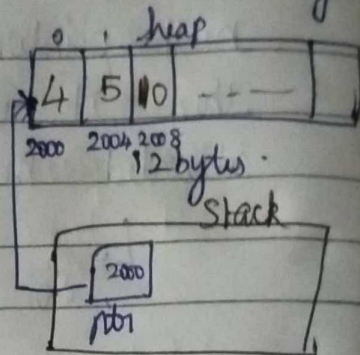 0 1 heap
4 5 10 - - -
2000 2004 2008
12 bytes.
Stack
2000
ptr